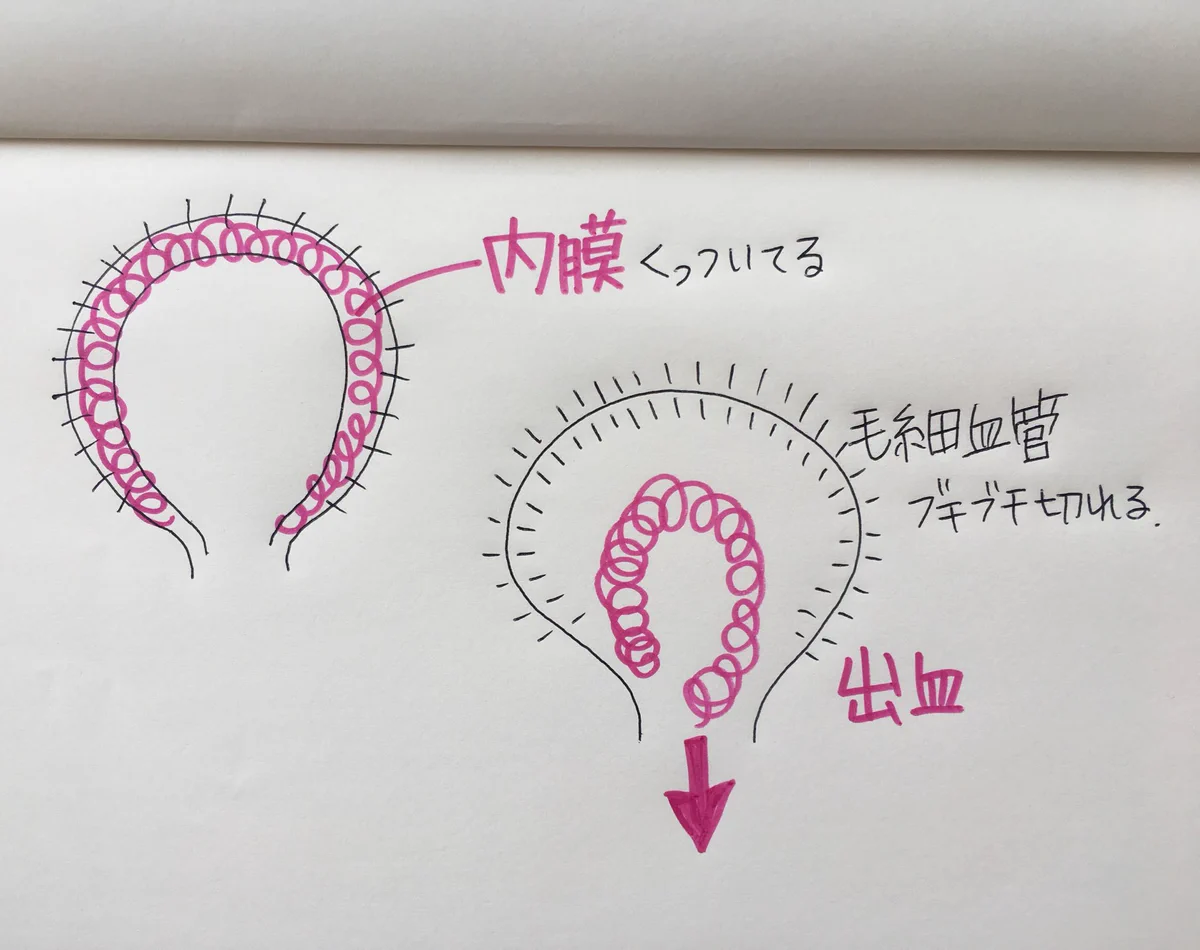 内膜くっついてる
毛細血管
ブチブチ切れる.
出血